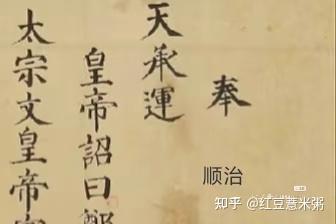 奉
天承運
皇帝詔曰
太宗文皇帝
顺治
知乎 @红豆薏米粥